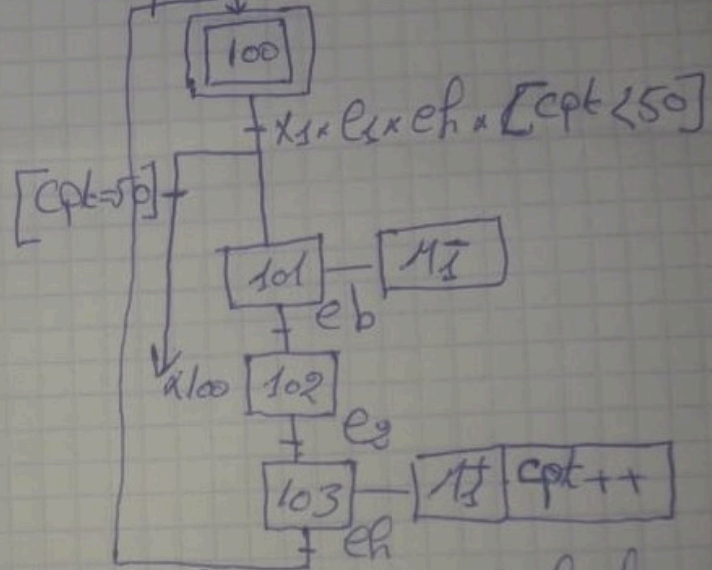 100
x1×e1×eh×[cpt<50]
[cpt=50]
101 M1⁻
eb
x100 102
e2
103 M1⁺ cpt++
eh